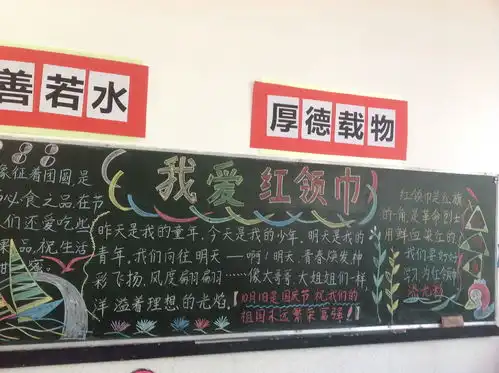 善若水
厚德载物
我爱红领巾
象征着团圆是
必食之品在节
人们还爱吃些
果品,祝生活
甜蜜。
昨天是我的童年,今天是我的少年,明天是我的
青年,我们向往明天——啊!明天,青春焕发神
彩飞扬,风度翩翩……像大哥哥、大姐姐们一样,
洋溢着理想的光焰。
10月1日是国庆节祝我们的
祖国永远繁荣富强!
红领巾是红旗
的一角是革命烈士
用鲜血染红的
我们要好好
学习为红领巾
添光彩